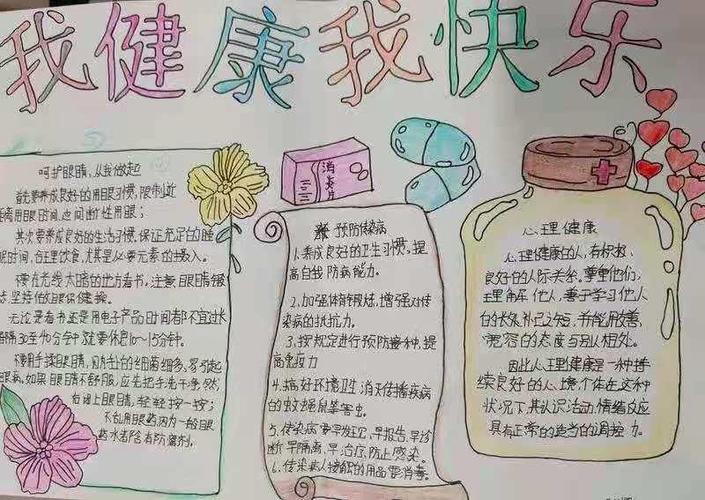 我健康我快乐
呵护眼睛,从我做起
首先要养成良好的用眼习惯,限制近
距离用眼时间,即间断性用眼;
其次要养成良好的生活习惯,保证充足的睡
眠时间,合理饮食,尤其是必要元素的摄入。
不要在光线太暗的地方看书,注意眼睛锻
坚持做眼保健操。
无论是看书还是用电子产品时间都不宜过长
每隔30至40分钟就要休息10~15分钟。
不要用手揉眼睛,因为手上的细菌很多,容易引起
眼病,如果眼睛不舒服,应先把手洗干净,然
后闭上眼睛,轻轻按一按;
不乱用眼药因为一般眼
药水都含有防腐剂。
消炎片
预防传染病
1.养成良好的卫生习惯,提
高自我防病能力。
2.加强体育锻炼,增强对传
染病的抵抗力。
3.按规定进行预防接种,提
高免疫力
4.搞好环境卫生消灭传播疾病
的蚊蝇鼠蟑害虫。
5.传染病要早发现,早报告,早诊
断早隔离,早治疗,防止感染。
6.传染病人接触的用品要消毒。
心理健康
心理健康的人,有积极、
良好的人际关系。尊重他们,
理解他人,善于学习他人
的长处补己之短,并能用友善、
宽容的态度与别人相处。
因此心理健康是一种持
续良好的心境,个体在这种
状况下,其认识活动,情绪反应
具有正常的适当的调控力。